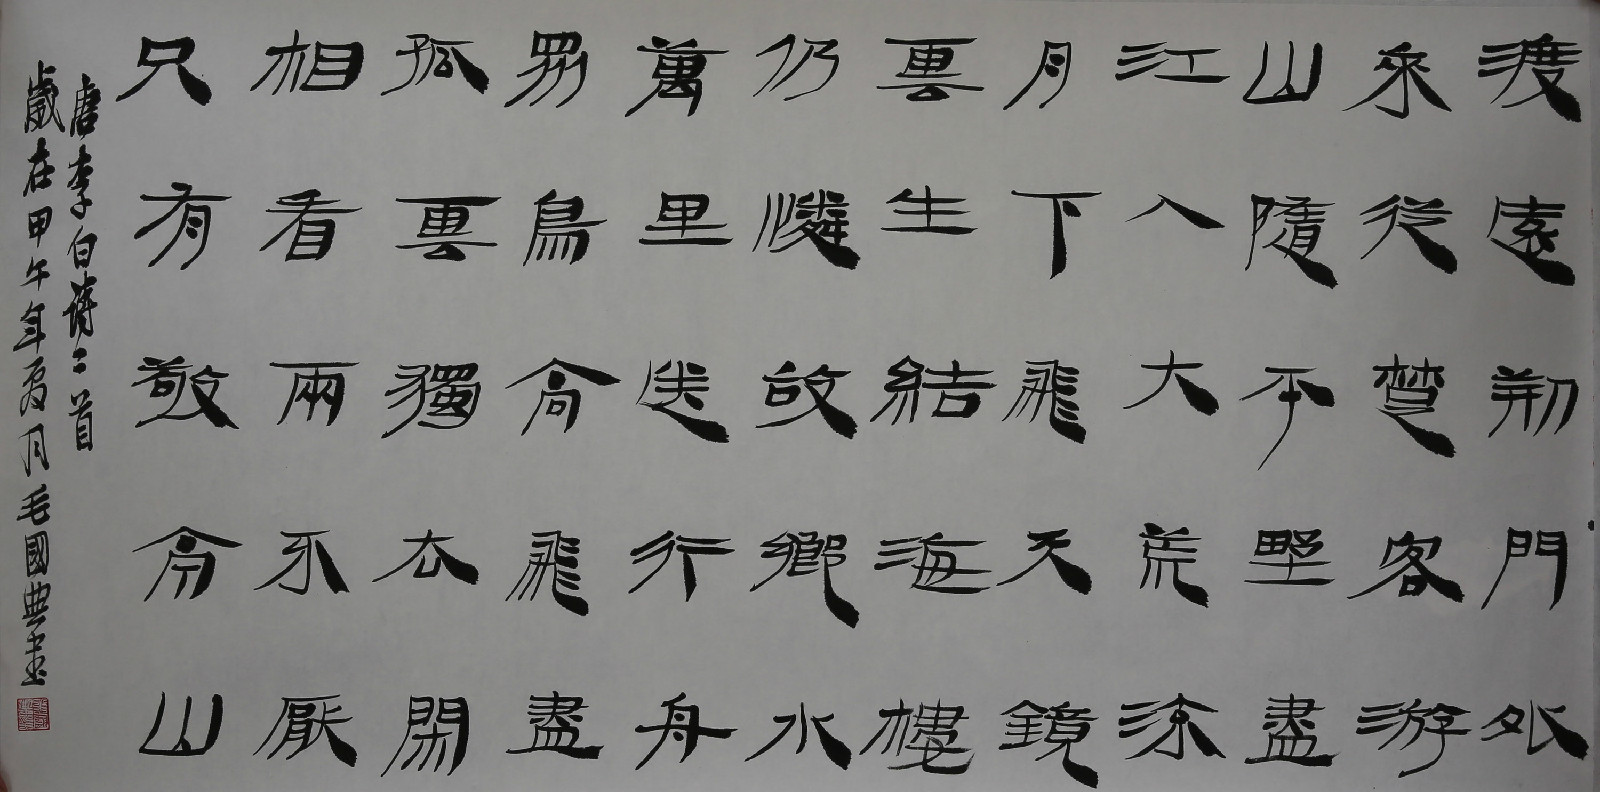 渡遠荆門外
來從楚客游
山隨平野盡
江入大荒流
月下飛天鏡
雲生結海樓
仍憐故鄉水
萬里送行舟
眾鳥高飛盡
孤雲獨去閑
相看兩不厭
只有敬亭山
唐李白詩二首
歲在甲午年夏月毛國典書